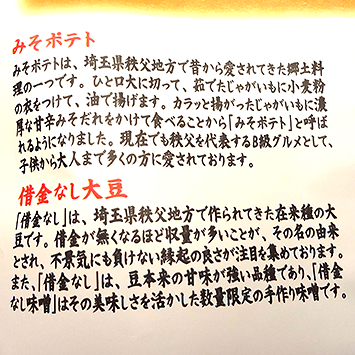 みそポテト
みそポテトは、埼玉県秩父地方で昔から愛されてきた郷土料
理の一つです。ひと口大に切って、茹でたじゃがいもに小麦粉
の衣をつけて、油で揚げます。カラッと揚がったじゃがいもに濃
厚な甘辛みそだれをかけて食べることから「みそポテト」と呼ば
れるようになりました。現在でも秩父を代表するB級グルメとして、
子供から大人まで多くの方に愛されております。
借金なし大豆
「借金なし」は、埼玉県秩父地方で作られてきた在来種の大
豆です。借金が無くなるほど収量が多いことが、その名の由来
とされ、不景気にも負けない縁起の良さが注目を集めております。
また、「借金なし」は、豆本来の甘味が強い品種であり、「借金
なし味噌」はその美味しさを活かした数量限定の手作り味噌です。